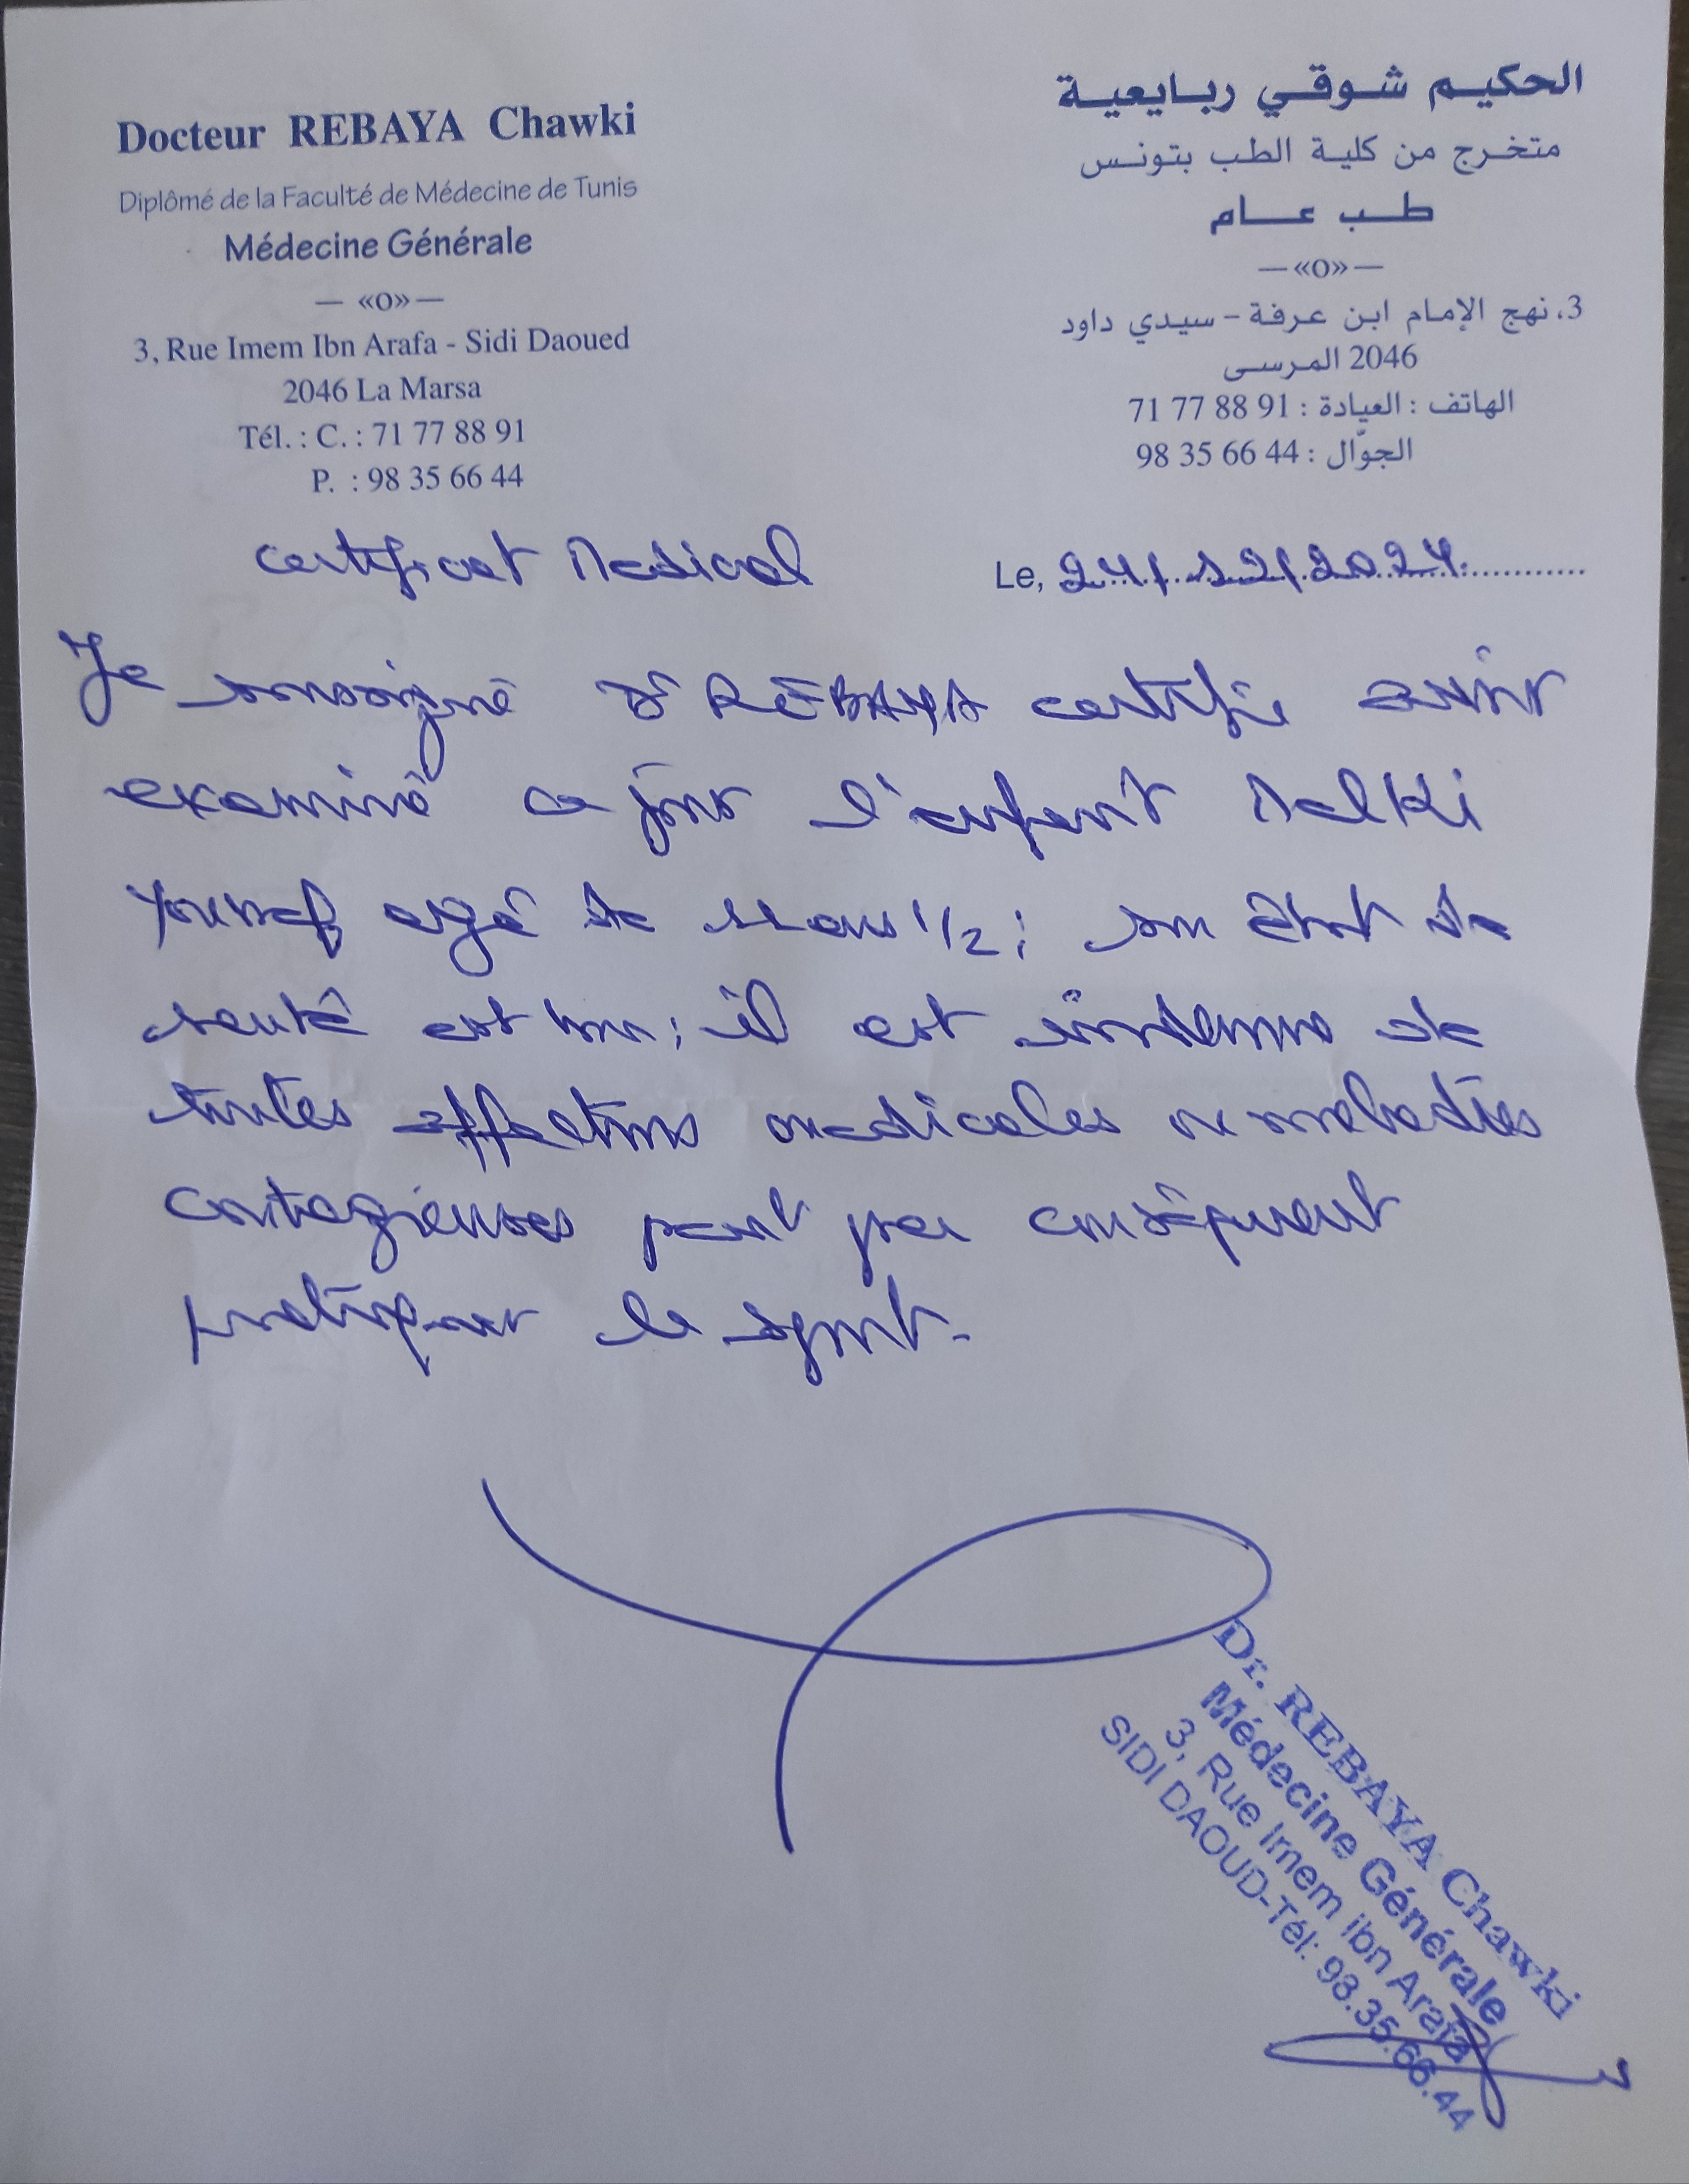 Docteur REBAYA Chawki
Diplômé de la Faculté de Médecine de Tunis
Médecine Générale
— «O» —
3, Rue Imem Ibn Arafa - Sidi Daoued
2046 La Marsa
Tél. : C. : 71 77 88 91
P. : 98 35 66 44
الحكيم شوقي ربايعية
متخرج من كلية الطب بتونس
طب عام
— «O» —
3، نهج الإمام ابن عرفة - سيدي داود
2046 المرسى
الهاتف : العيادة : 91 88 77 71
الجوّال : 44 66 35 98
Certificat Medical
Le, 24/12/2024
Je soussigné Dr REBAYA certifie avoir
examiné ce jour l'enfant Melki
Youssef agé de 11 ans 1/2 ; son état de
santé est bon ; il est indemne de
toutes affections medicales ou maladies
contagieuses peut par conséquent
pratiquer le sport.
Dr. REBAYA Chawki
Médecine Générale
3, Rue Imem ibn Arafa
SIDI DAOUD-Tél: 98.35.66.44